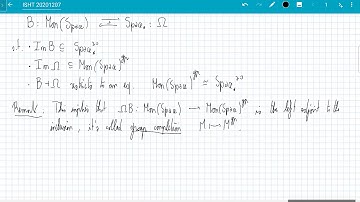 ISHT 20201207
B : Mon(Spaces) ⇄ Spaces_* : Ω
s.t. • Im B ⊆ Spaces_*^{≥0}
• Im Ω ⊆ Mon(Spaces)^{gp}
• B ⊣ Ω restricts to an eq. Mon(Spaces)^{gp} ≃ Spaces_*^{≥0}
Remark: This implies that ΩB : Mon(Spaces) → Mon(Spaces)^{gp} is the left adjoint to the
inclusion, it's called group completion M ↦ M^{gp}.